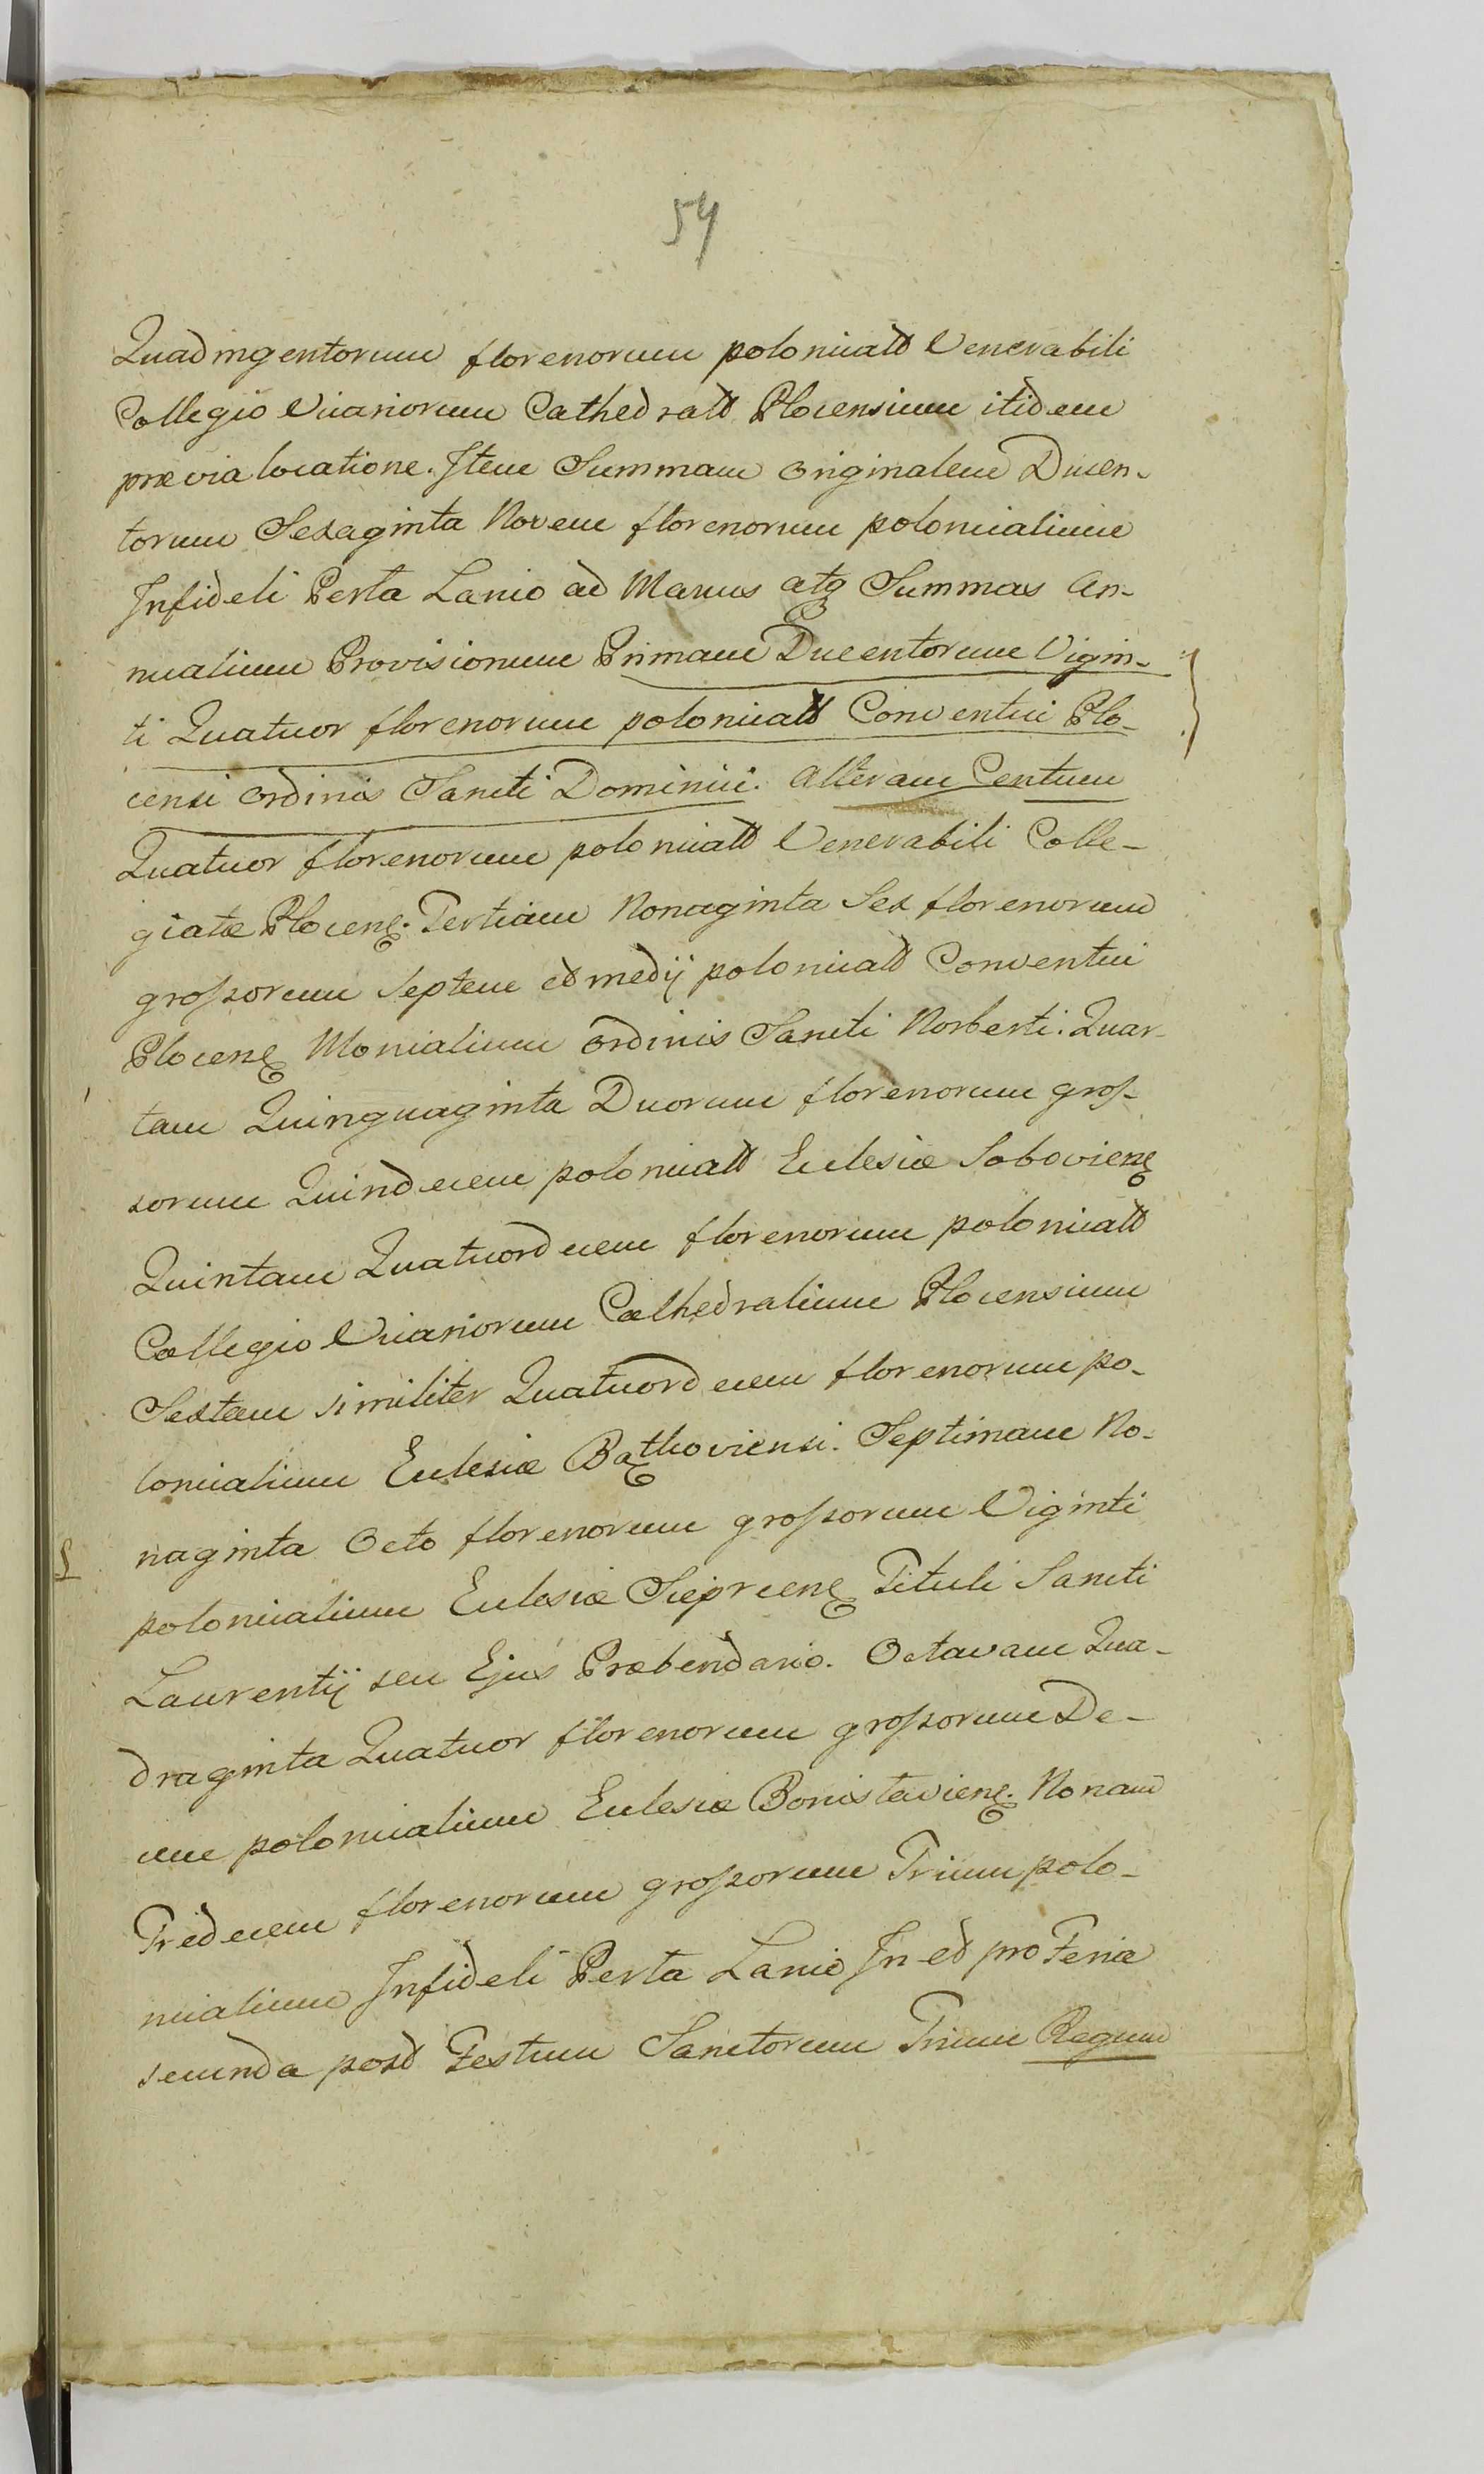 54
Quadringentorum florenorum polonicall Venerabili
Collegio Vicariorum Cathedrall Plocensium itidem
prævia locatione. Item Summam originalem Ducen-
torum Sexaginta Novem florenorum polonicalium
Infideli Perla Lanio ad Manus atq Summas An-
nualium Provisionum Primam Ducentorum Vigin-
ti Quatuor florenorum polonicall Conventui Plo-
censi ordinis Sancti Dominici. Alteram Centum
Quatuor florenorum polonicall Venerabili Colle-
giatæ Plocens. Tertiam Nonaginta Sex florenorum
grossorum Septem et medij polonicall Conventui
Plocens Monialium ordinis Sancti Norberti. Quar-
tam Quinquaginta Duorum florenorum gros-
sorum Quindecem polonicall Ecclesiæ Soboviens
Quintam Quatuordecem florenorum polonicall
Collegio Vicariorum Cathedralium Plocensium
Sextam similiter Quatuordecem florenorum po-
lonicalium Ecclesiæ Bąthoviensi. Septimam No-
naginta Octo florenorum grossorum Viginti
polonicalium Ecclesiæ Sieprcens Tituli Sancti
Laurentij seu Ejus Præbendario. Octavam Qua-
draginta Quatuor florenorum grossorum De-
cem polonicalium Ecclesiæ Bonislaviens. Nonam
Tredecem florenorum grossorum Trium polo-
nicalium Infideli Perla Lanio In et pro Feria
secunda post Festum Sanctorum Trium Regum